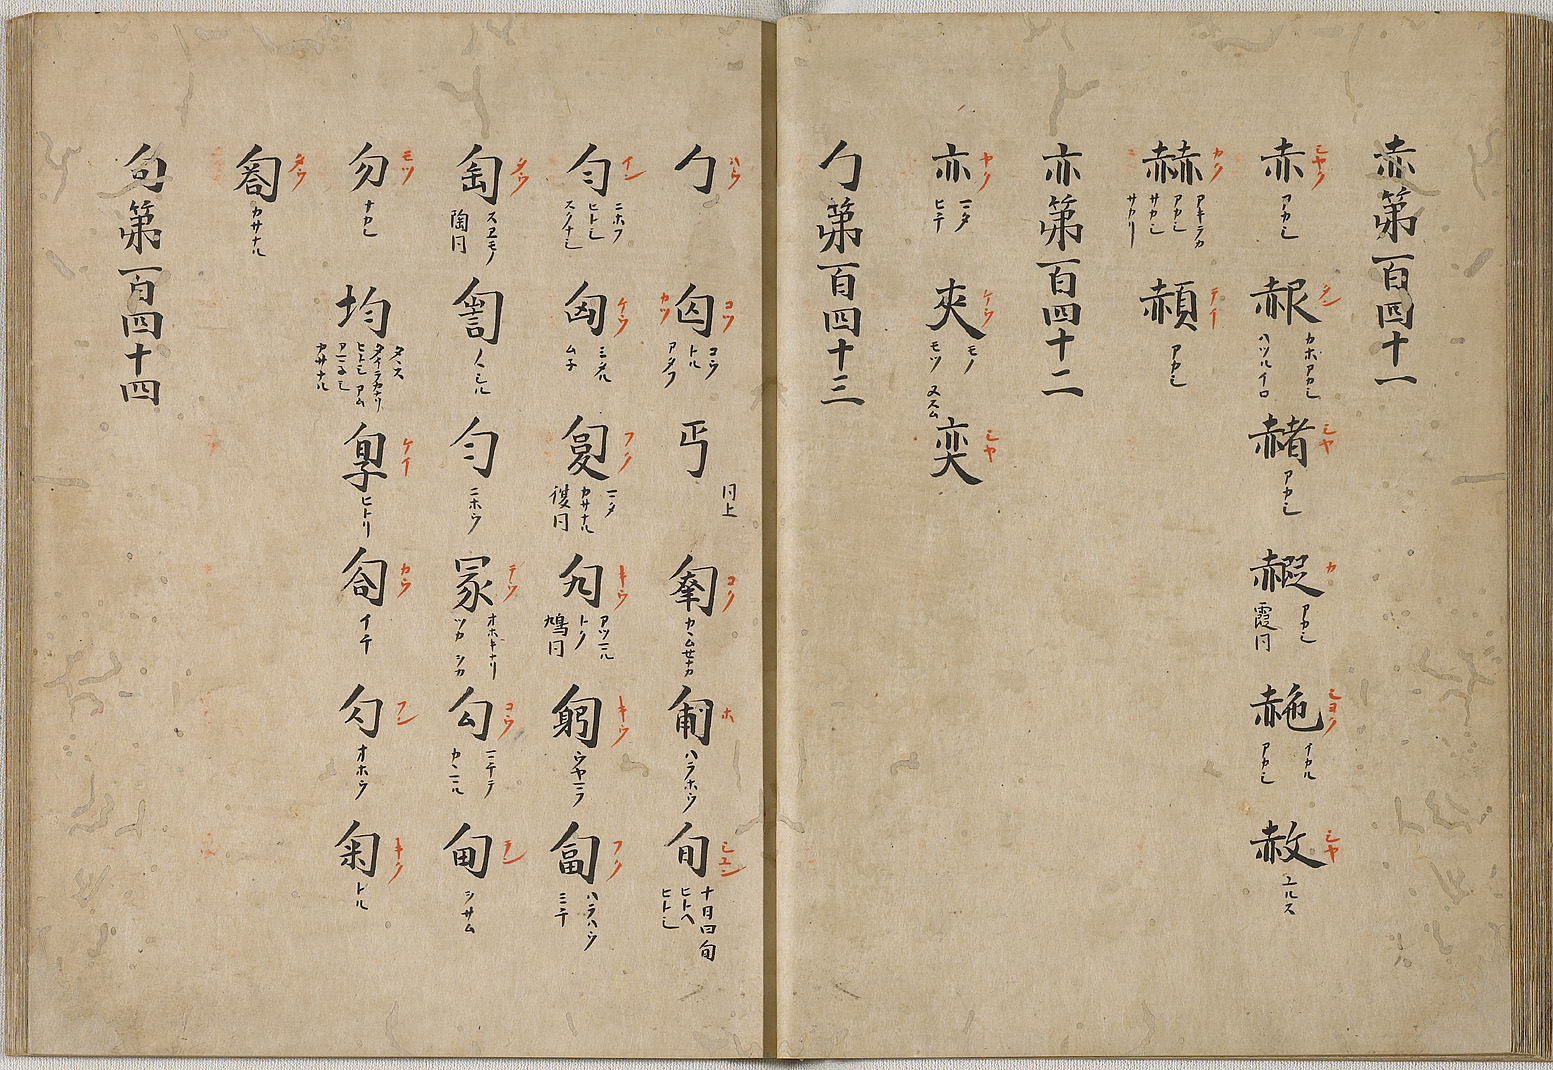 赤第一百四十一
赤 シヤク アカシ
赧 タン カホアカシ ハツルイロ
赭 シヤ アカシ
赮 カ アカシ 霞同
赩 シヨク イカル アカシ
赦 シヤ ユルス
赫 カク アキラカ アカシ サカシ サカリ
赬 テイ アカシ
亦第一百四十二
亦 ヤク マタ ヒテ
夾 ケウ モノ モツ 又スム
奕 シヤ
勹第一百四十三
勹 ハウ
匃 コウ カウ コウ トル アタフ
丐 同上
コク カムセナカ
匍 ホ ハラホウ
旬 シユン 十日曰旬 ヒトヘ ヒトシ
匀 イン ニホフ ヒトシ スクナシ
匈 ケウ ミタル ムネ
フク マタ カサナル 復同
勼 キウ アツマル トク 鳩同
匑 キウ ウヤマフ
匐 フク ハラハウ ミテ
匋 タウ スヱモノ 陶同
訇 ノヽシル
匀 ニホウ
冢 チウ オホキナリ ツカ シカ
勾 コウ マケテ カヽマル
甸 テン シサム
勿 モツ ナカレ
均 タヽス タイラカナリ ヒトシ アム アマネシ カサナル
ケイ ヒトリ
匌 カウ イテ
勽 フン オホウ
匊 キク トル
タウ カサナル
句第一百四十四